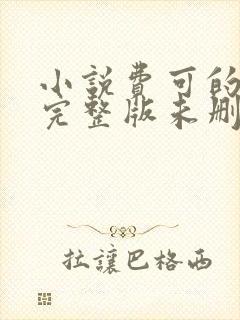 小説費可的
完整版未刪
拉讓巴格西